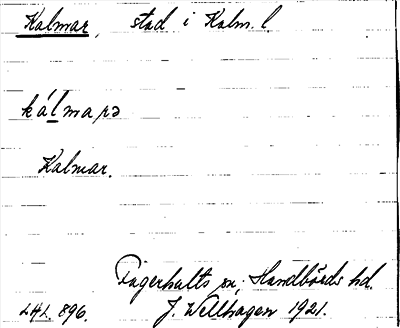 Kalmar, stad i Kalm. l.
kálmarə
Kalmar.
Fagerhults sn, Handbörds hd.
LHL. 896. J. Wellhagen 1921.